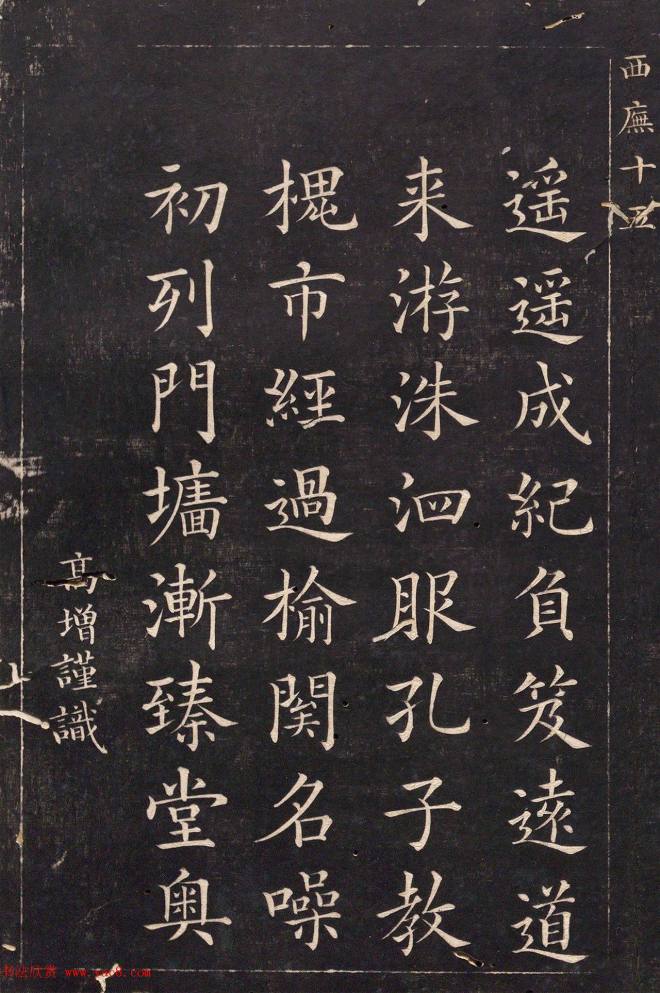 西廡十五
遥遥成紀負笈遠道
来游洙泗服孔子教
槐市經過榆関名噪
初列門墻漸臻堂奥
高增謹識
书法欣赏 www.yac8.com